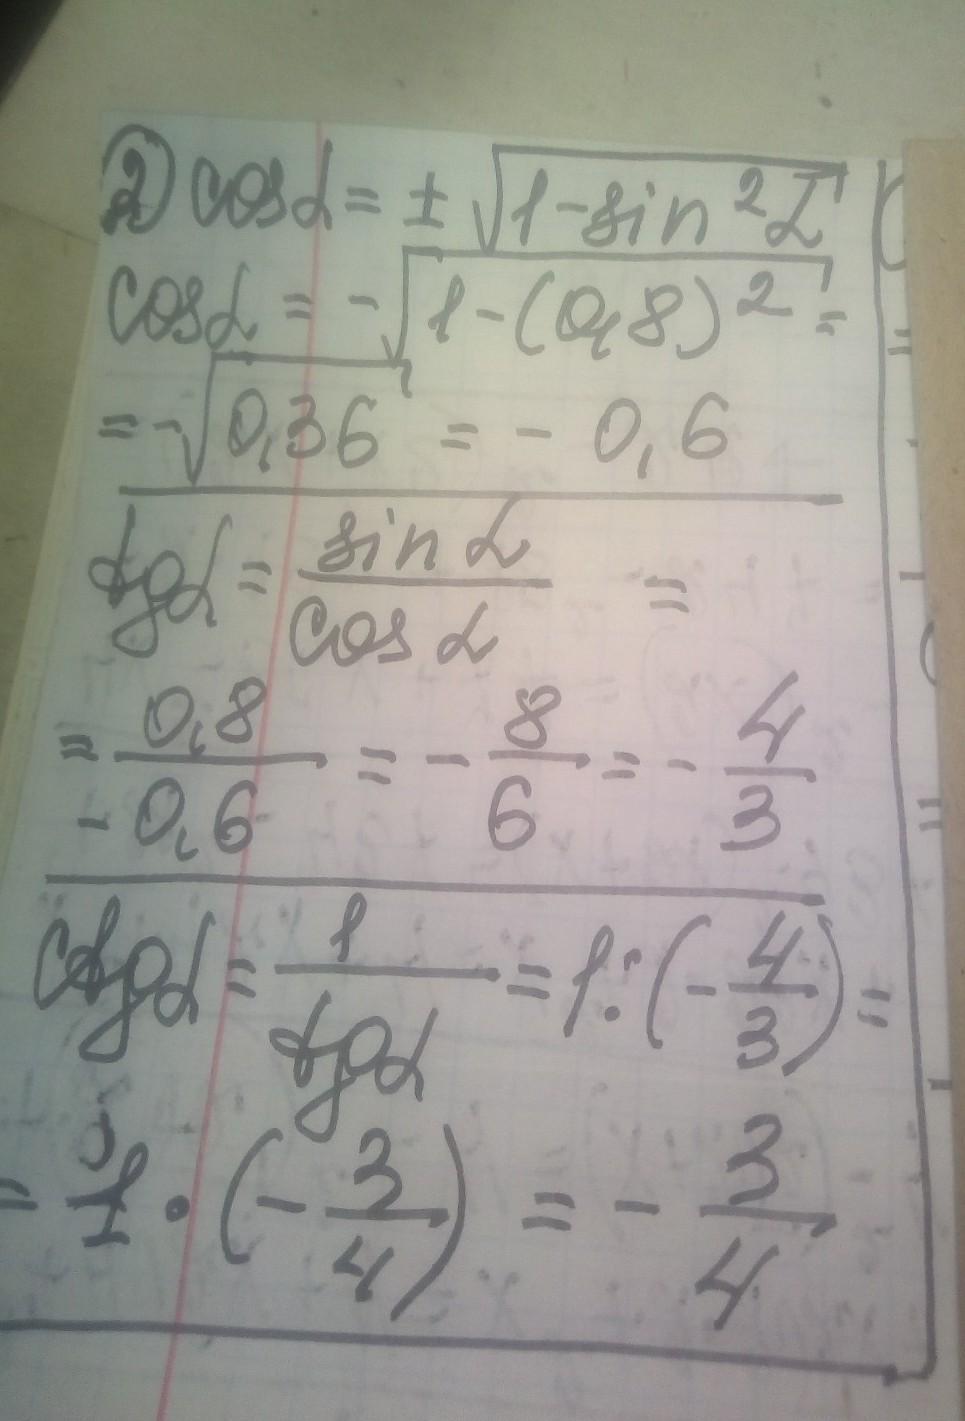 2) cosα = ± √(1 - sin²α)
cosα = - √(1 - (0,8)²) =
= - √0,36 = - 0,6
tgα = sin α / cos α =
= 0,8 / - 0,6 = - 8/6 = - 4/3
ctgα = 1 / tgα = 1 : (- 4/3) =
= 1 · (- 3/4) = - 3/4